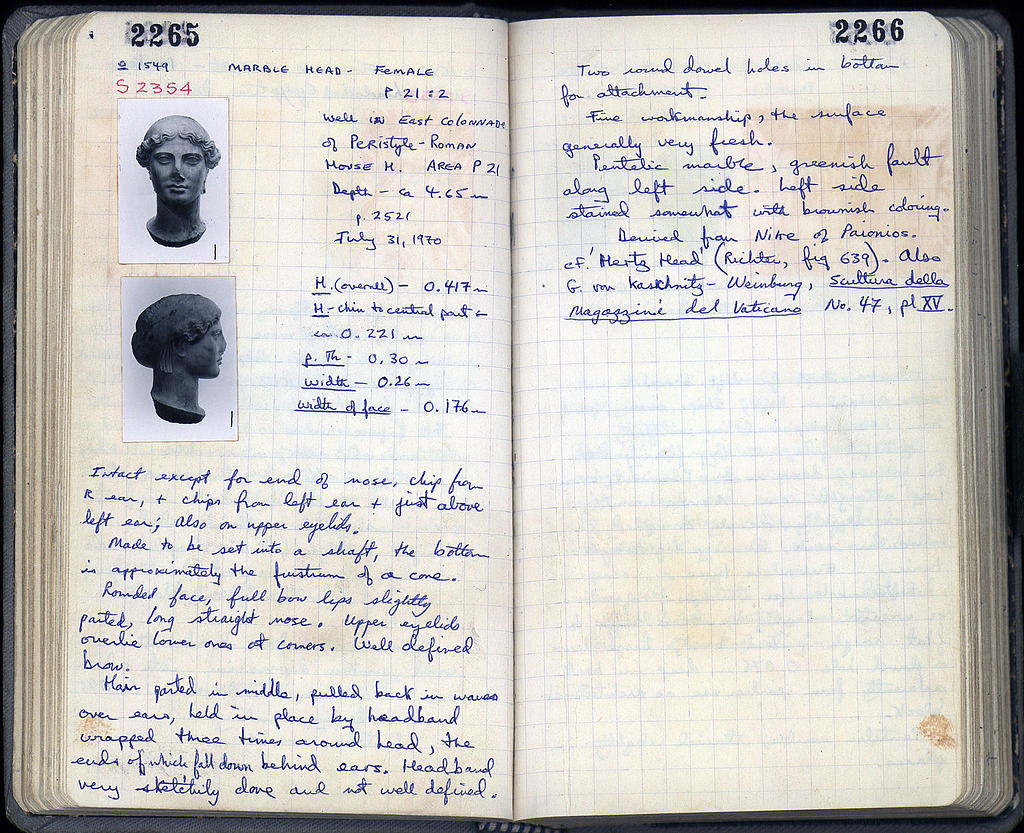 2265
º 1549 MARBLE HEAD - FEMALE
S 2354
P 21:2
Well in East Colonnade
of Peristyle - Roman
House H. Area P 21
Depth - ca 4.65 m
p. 2521
July 31, 1970
H. (overall) - 0.417 m
H. - chin to central part -
ca 0.221 m
p. Th - 0.30 m
width - 0.26 m
width of face - 0.176 m
Intact except for end of nose, chip from
R ear, + chips from left ear + just above
left ear; also on upper eyelids.
Made to be set into a shaft, the bottom
is approximately the frustrum of a cone.
Rounded face, full bow lips slightly
parted, long straight nose. Upper eyelids
overlie lower ones at corners. Well defined
brow.
Hair parted in middle, pulled back in waves
over ears, held in place by headband
wrapped three times around head, the
ends of which fall down behind ears. Headband
very sketchily done and not well defined.
2266
Two round dowel holes in bottom
for attachment.
Fine workmanship, the surface
generally very fresh.
Pentelic marble, greenish fault
along left side. Left side
stained somewhat with brownish coloring.
Derived from Nike of Paionios.
cf. 'Hertz Head' (Richter, fig 639). Also
G. von Kaschnitz-Weinburg, Scultura della
Magazzine del Vaticano No. 47, pl XV.